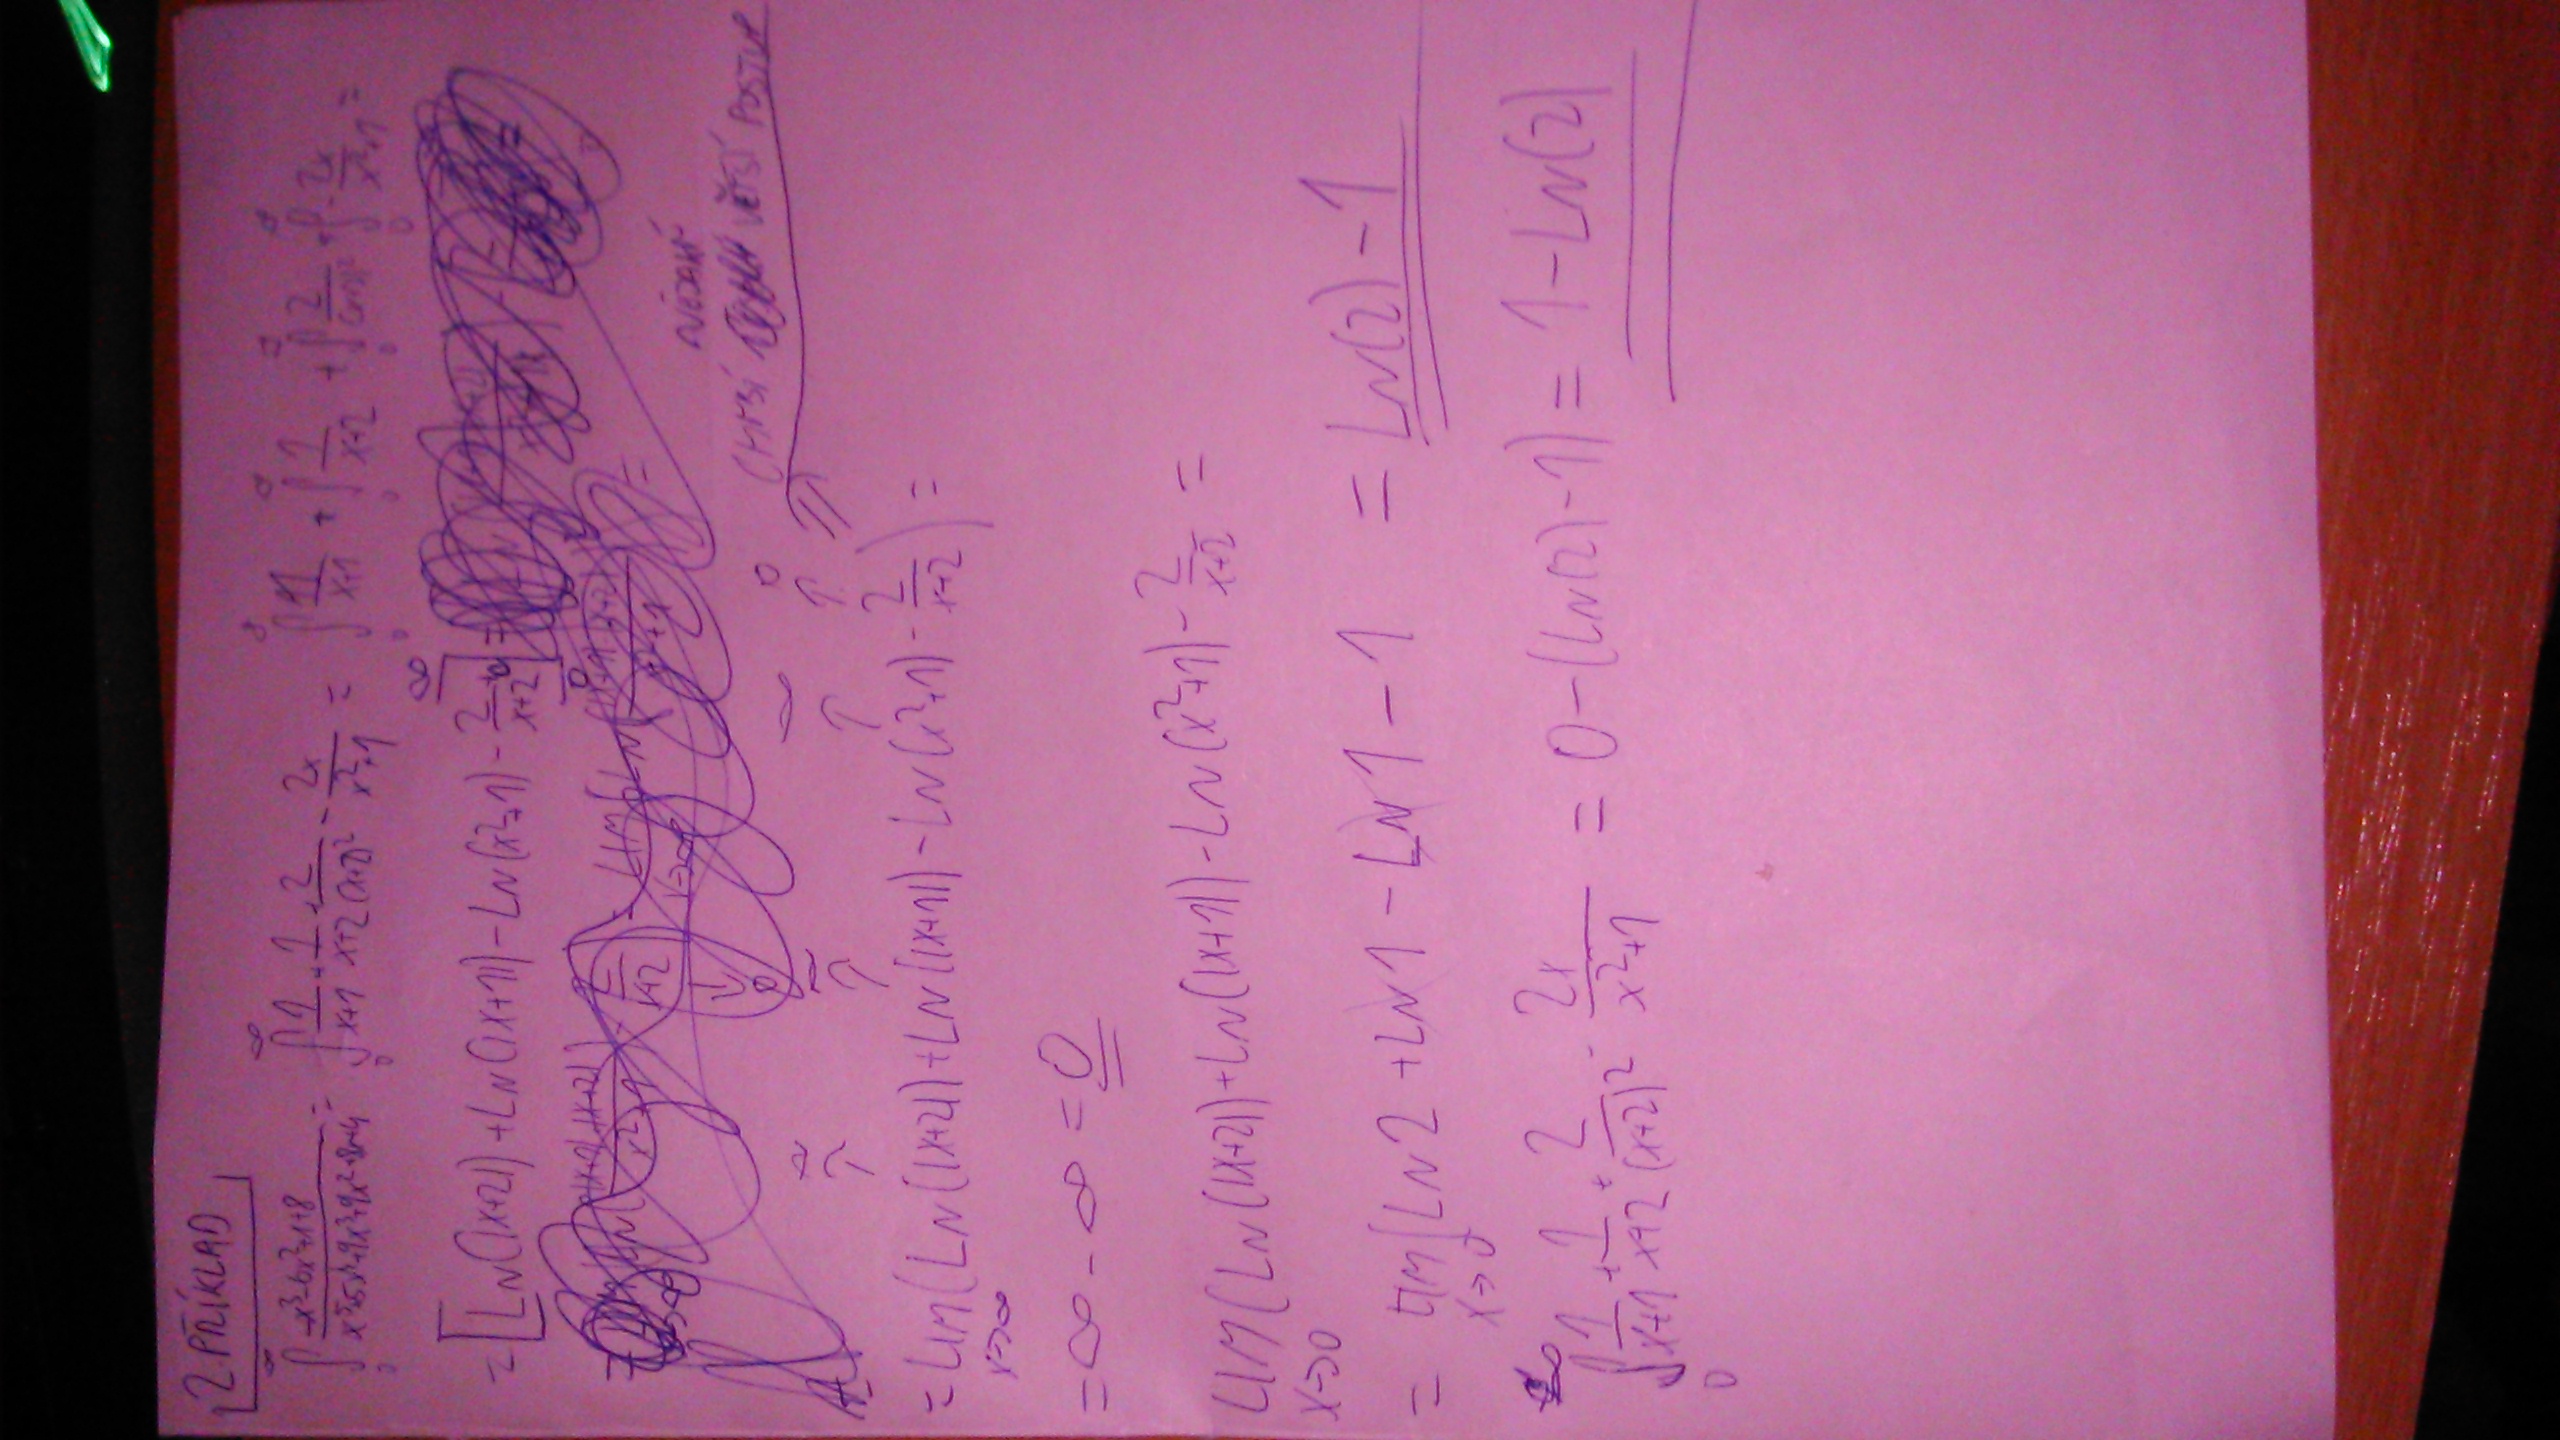 2. PŘÍKLAD
∫₀^∞ (-x³-6x²+1+8)/(x⁵+5x⁴+9x³+9x²+8x+4) = ∫₀^∞ 1/(x+1) + 1/(x+2) + 2/(x+2)² - 2x/(x²+1) = ∫₀^∞ 1/(x+1) + ∫₀^∞ 1/(x+2) + ∫₀^∞ 2/(x+2)² + ∫₀^∞ - 2x/(x²+1) =
= [LN(|x+2|) + LN(|x+1|) - LN(x²+1) - 2/(x+2)]₀^∞ =
CHYBÍ NĚJAKÝ VĚTŠÍ POSTUP
∞ ∞ ∞ 0
↑ ↑ ↑ ↑ ⇒
= LIM x→∞ (LN(|x+2|) + LN(|x+1|) - LN(x²+1) - 2/(x+2)) =
= ∞ - ∞ = 0
LIM x→0 (LN(|x+2|) + LN(|x+1|) - LN(x²+1) - 2/(x+2) =
= LIM x→0 (LN 2 + LN 1 - LN 1 - 1 = LN(2) - 1
∫₀^∞ 1/(x+1) + 1/(x+2) + 2/(x+2)² - 2x/(x²+1) = 0 - (LN(2) - 1) = 1 - LN(2)